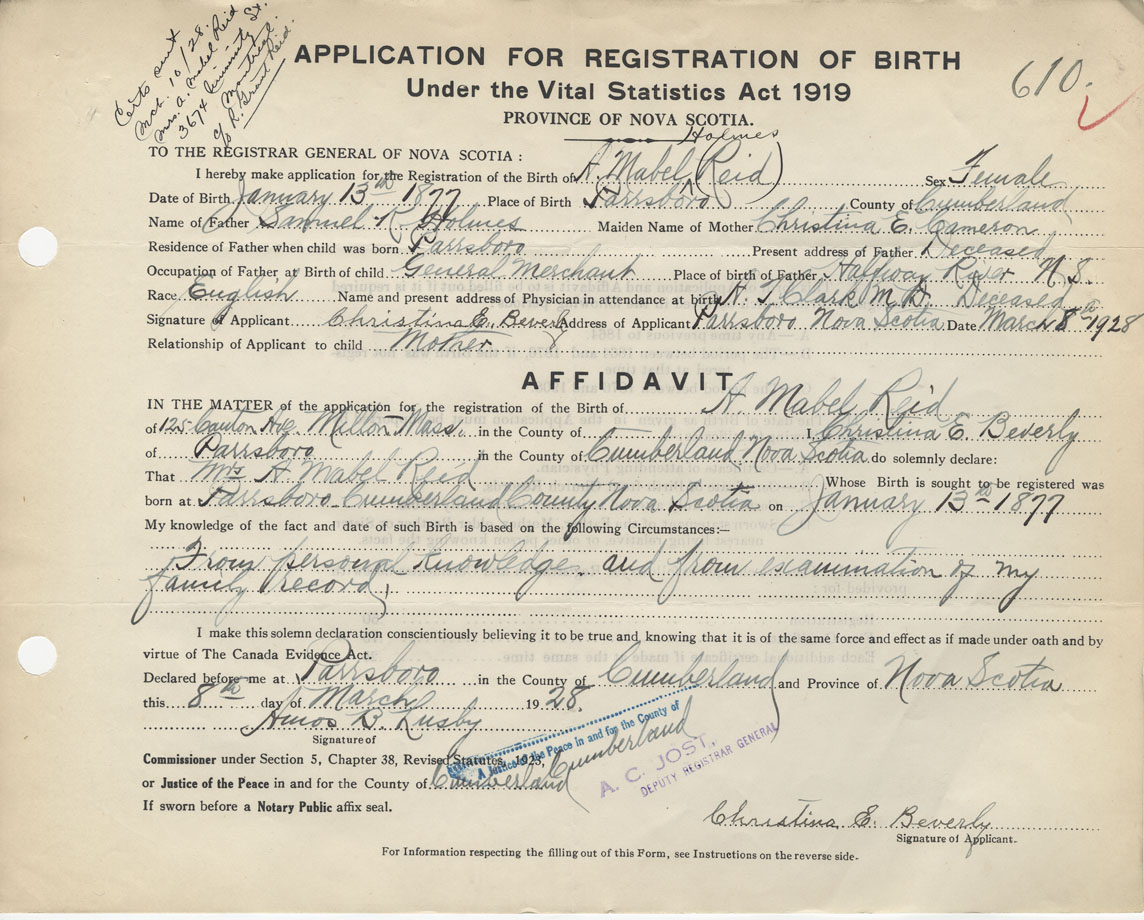 Certs sent
Oct. 10/28.
Mrs. A. Mabel Reid
3674 University St.
Montreal.
c/o R. Grant Reid.
APPLICATION FOR REGISTRATION OF BIRTH
Under the Vital Statistics Act 1919
PROVINCE OF NOVA SCOTIA.
610.
Holmes
TO THE REGISTRAR GENERAL OF NOVA SCOTIA :
I hereby make application for the Registration of the Birth of A. Mabel (Reid) Sex Female
Date of Birth January 13th 1877 Place of Birth Parrsboro County of Cumberland
Name of Father Samuel R. Holmes Maiden Name of Mother Christina E. Cameron
Residence of Father when child was born Parrsboro Present address of Father Deceased
Occupation of Father at Birth of child General Merchant Place of birth of Father Halfway River N.S.
Race English Name and present address of Physician in attendance at birth A. T. Clark M.D. Deceased
Signature of Applicant Christina E. Beverly Address of Applicant Parrsboro Nova Scotia Date March 8th 1928
Relationship of Applicant to child Mother
AFFIDAVIT
IN THE MATTER of the application for the registration of the Birth of A. Mabel Reid
of 125 Canton Ave. Milton Mass. in the County of I Christina E. Beverly
of Parrsboro in the County of Cumberland Nova Scotia do solemnly declare:
That Mrs A. Mabel Reid Whose Birth is sought to be registered was
born at Parrsboro Cumberland County Nova Scotia on January 13th 1877
My knowledge of the fact and date of such Birth is based on the following Circumstances:—
From personal knowledge. and from examination of my
family record,
I make this solemn declaration conscientiously believing it to be true and knowing that it is of the same force and effect as if made under oath and by
virtue of The Canada Evidence Act.
Declared before me at Parrsboro in the County of Cumberland and Province of Nova Scotia
this 8th day of March 1928.
Amos B. Lusby
Signature of
A Justice of the Peace in and for the County of
Cumberland
Commissioner under Section 5, Chapter 38, Revised Statutes, 1923,
or Justice of the Peace in and for the County of Cumberland
If sworn before a Notary Public affix seal.
A. C. JOST,
DEPUTY REGISTRAR GENERAL
Christina E. Beverly
Signature of Applicant.
For Information respecting the filling out of this Form, see Instructions on the reverse side.